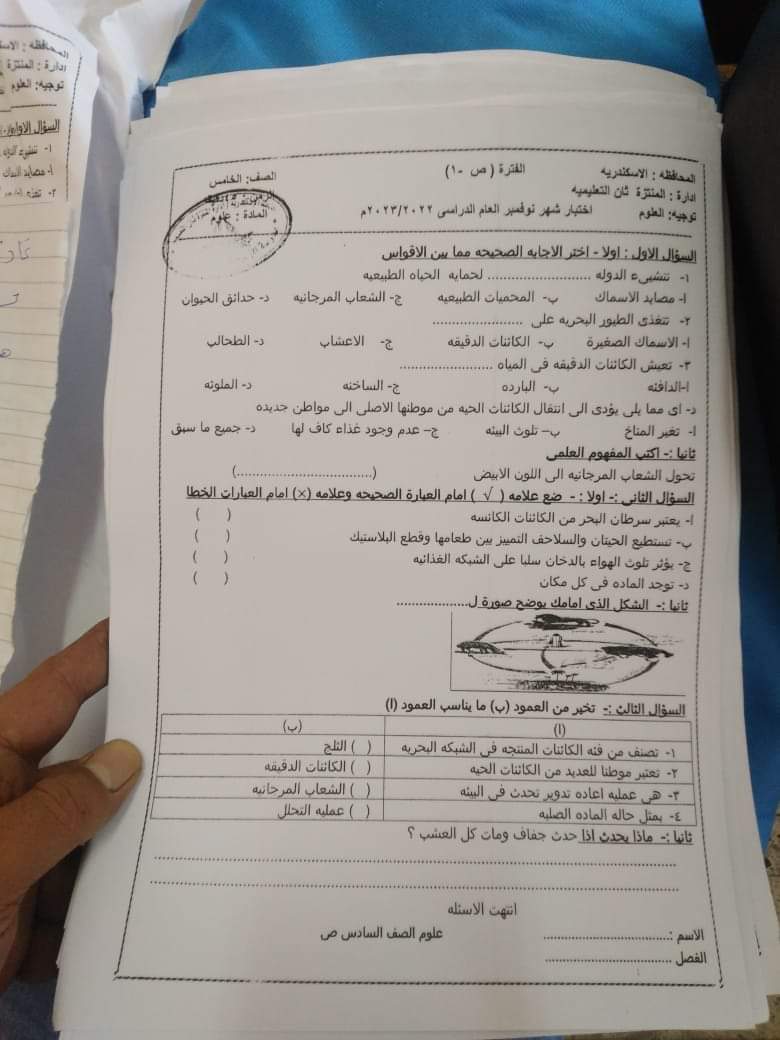 المحافظه : الاسكندريه الفترة ( ص -١) الصف: الخامس
ادارة : المنتزة ثان التعليميه
توجيه: العلوم اختبار شهر نوفمبر العام الدراسى ٢٠٢٣/٢٠٢٢م المادة : علوم
السؤال الاول : اولا - اختر الاجابه الصحيحه مما بين الاقواس
١- تنشىء الدوله .......................... لحمايه الحياه الطبيعيه
ا- مصايد الاسماك ب- المحميات الطبيعيه ج- الشعاب المرجانيه د- حدائق الحيوان
٢- تتغذى الطيور البحريه على .......................
ا- الاسماك الصغيرة ب- الكائنات الدقيقه ج- الاعشاب د- الطحالب
٣- تعيش الكائنات الدقيقه فى المياه ........................
ا-الدافئه ب- البارده ج- الساخنه د- الملوثه
د- اى مما يلى يؤدى الى انتقال الكائنات الحيه من موطنها الاصلى الى مواطن جديده
ا- تغير المناخ ب– تلوث البيئه ج– عدم وجود غذاء كاف لها د- جميع ما سبق
ثانيا :- اكتب المفهوم العلمى
تحول الشعاب المرجانيه الى اللون الابيض (..................................)
السؤال الثانى :- اولا : - ضع علامه ( √ ) امام العبارة الصحيحه وعلامه (×) امام العبارات الخطا
ا- يعتبر سرطان البحر من الكائنات الكانسه ( )
ب- تستطيع الحيتان والسلاحف التمييز بين طعامها وقطع البلاستيك ( )
ج- يؤثر تلوث الهواء بالدخان سلبا على الشبكه الغذائيه ( )
د- توجد الماده فى كل مكان ( )
ثانيا :- الشكل الذى امامك يوضح صورة ل..................
السؤال الثالث :- تخير من العمود (ب) ما يناسب العمود (ا)
(ا) (ب)
١- تصنف من فئه الكائنات المنتجه فى الشبكه البحريه ( ) الثلج
٢- تعتبر موطنا للعديد من الكائنات الحيه ( ) الكائنات الدقيقه
٣- هى عمليه اعاده تدوير تحدث فى البيئه ( ) الشعاب المرجانيه
٤- يمثل حاله الماده الصلبه ( ) عمليه التحلل
ثانيا :- ماذا يحدث اذا حدث جفاف ومات كل العشب ؟
انتهت الاسئله
الاسم :................................. علوم الصف السادس ص
الفصل .................................
المحافظه : الاسك
ادارة : المنتزة
توجيه: العلوم
السؤال الاول
١- تنشىء الدوله
ا- مصايد الاسماك